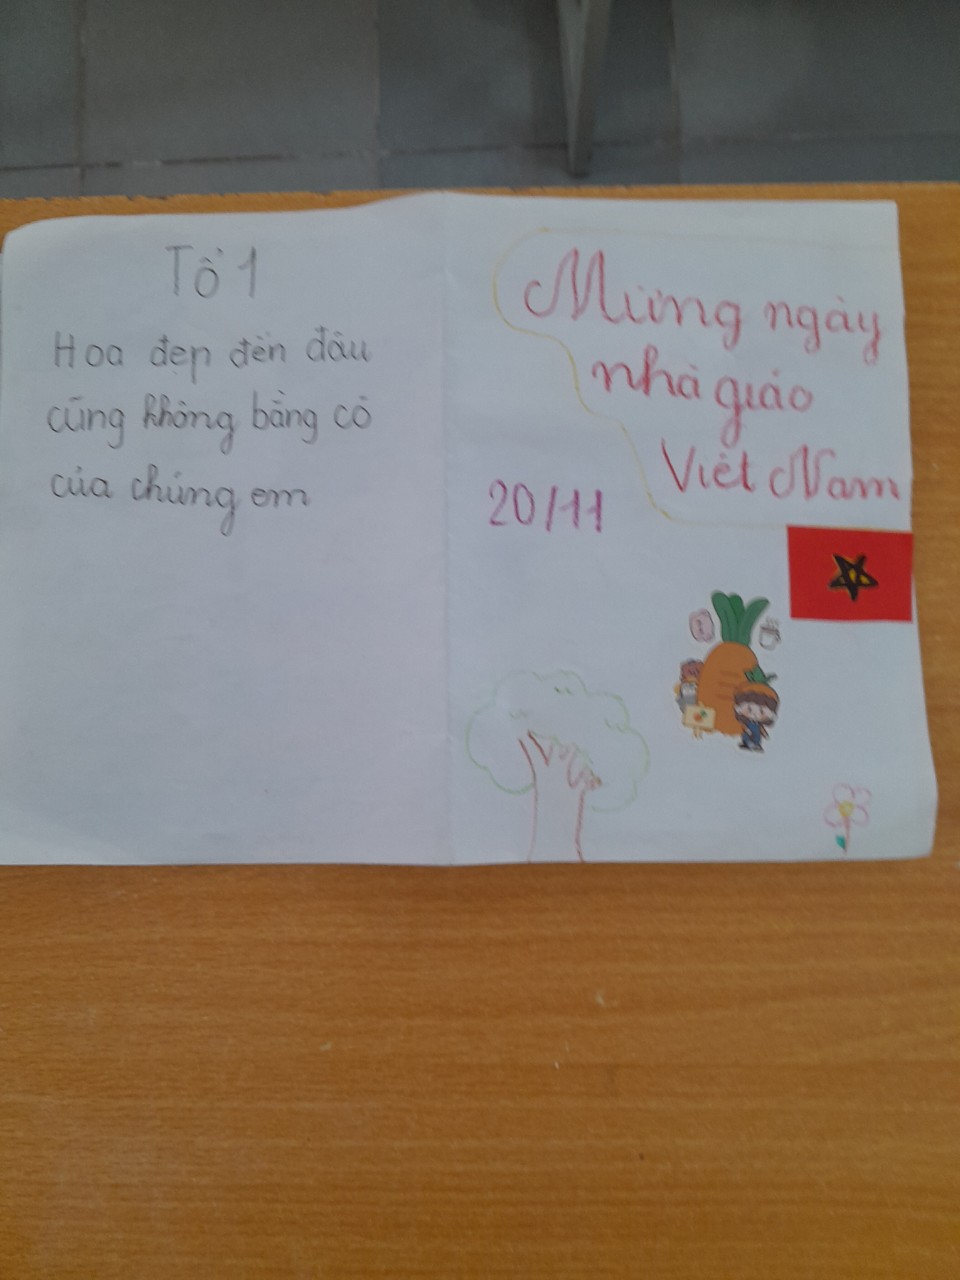 Tổ 1
Hoa đẹp đến đâu
cũng không bằng cô
của chúng em
Mừng ngày
nhà giáo
Việt Nam
20/11